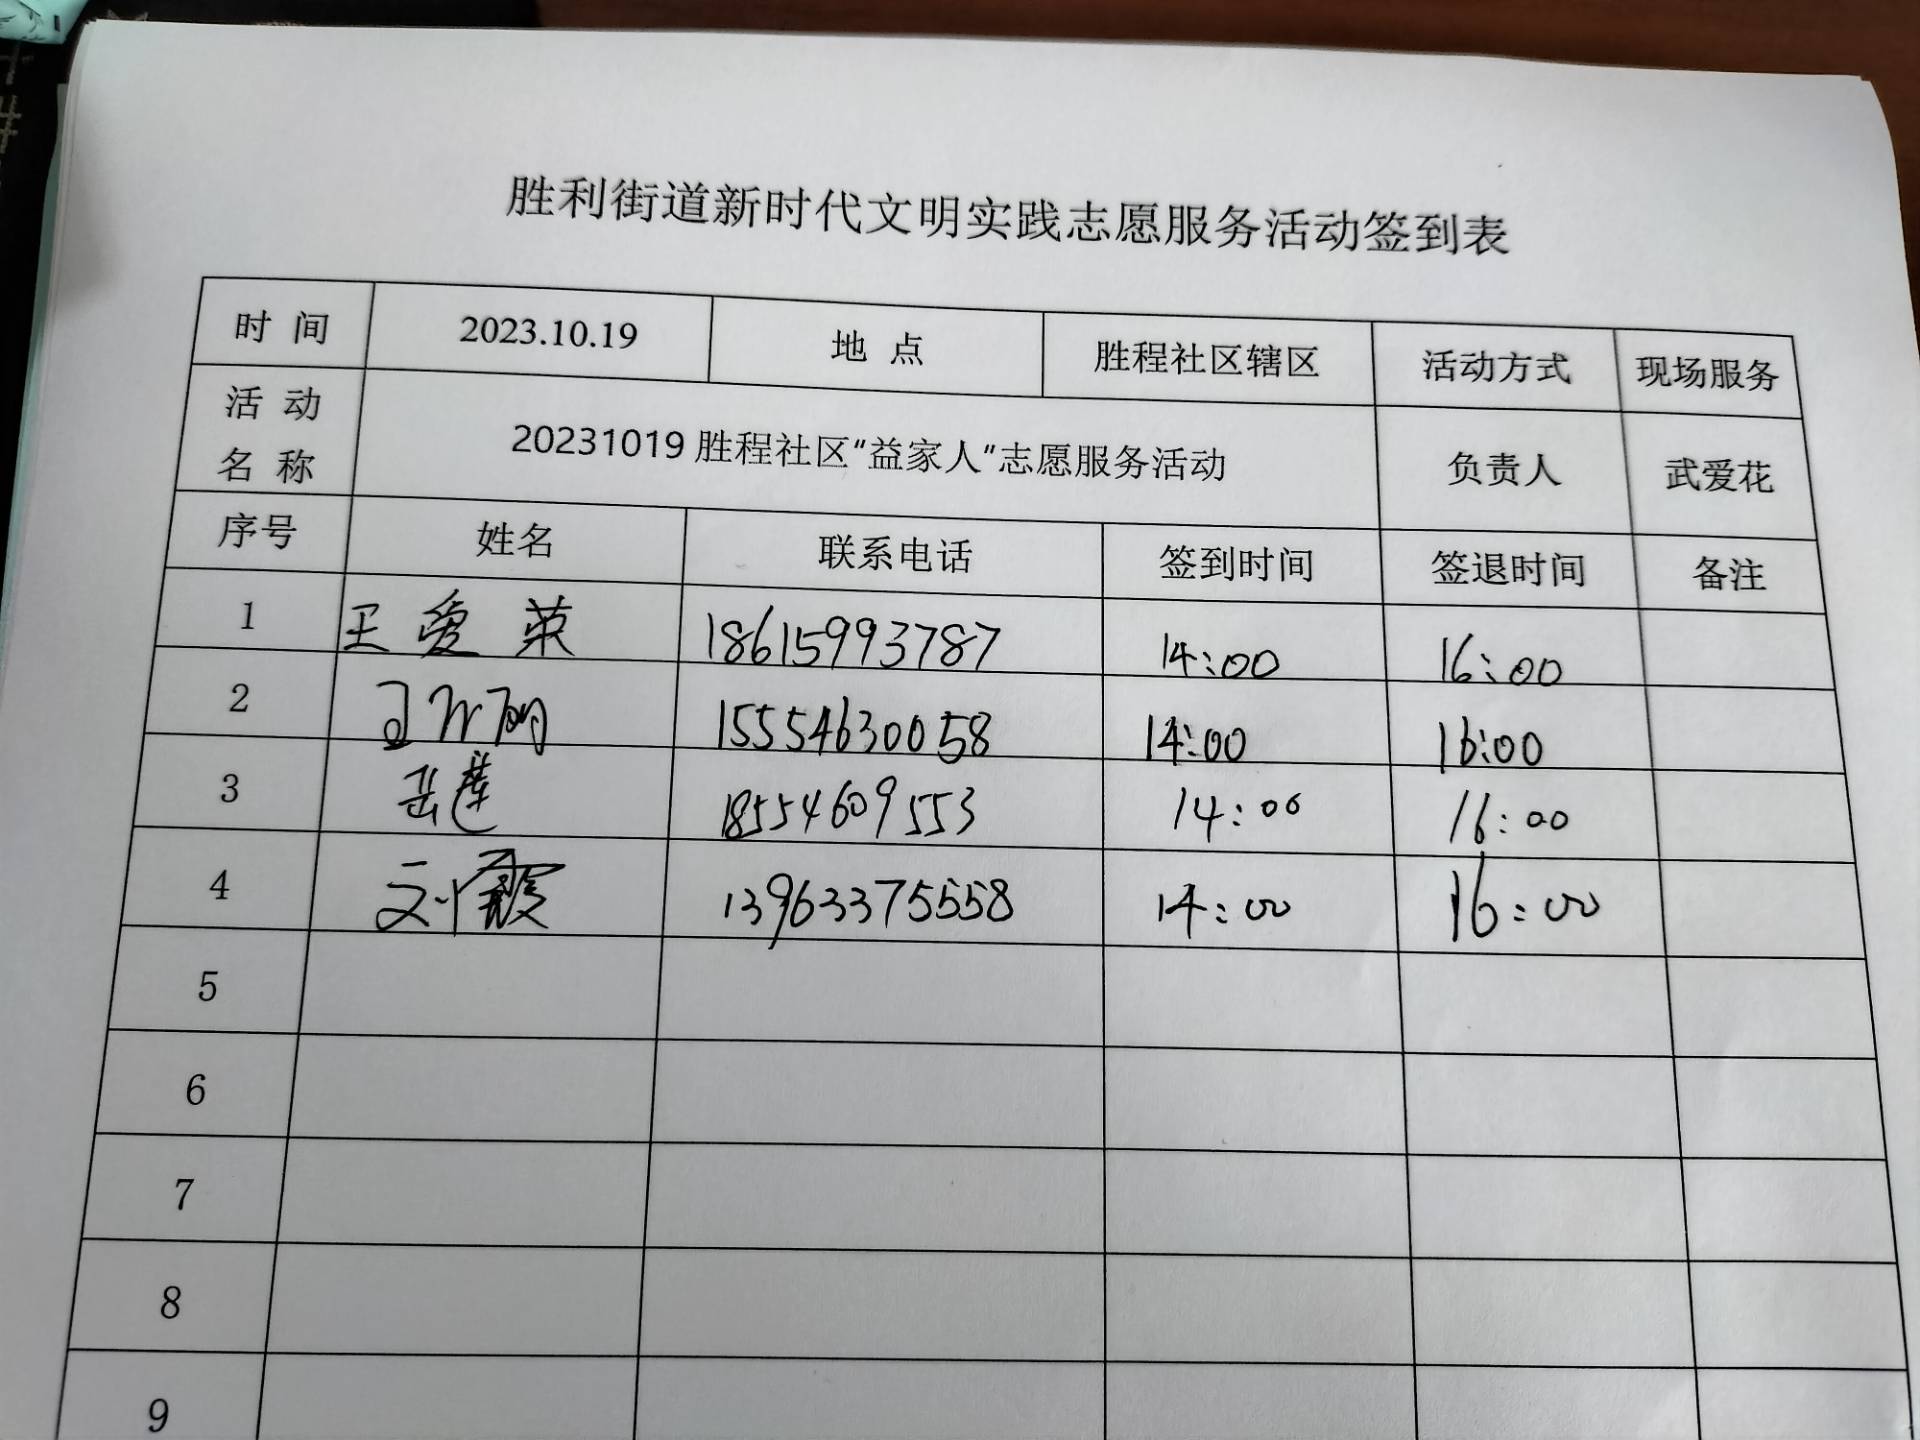 胜利街道新时代文明实践志愿服务活动签到表
时 间 2023.10.19 地 点 胜程社区辖区 活动方式 现场服务
活 动
名 称 20231019 胜程社区“益家人”志愿服务活动 负责人 武爱花
序号 姓名 联系电话 签到时间 签退时间 备注
1 王爱荣 18615993787 14:00 16:00
2 15554630058 14:00 16:00
3 岳莲 18554609553 14:00 16:00
4 刘霞 13963375558 14:00 16:00
5
6
7
8
9